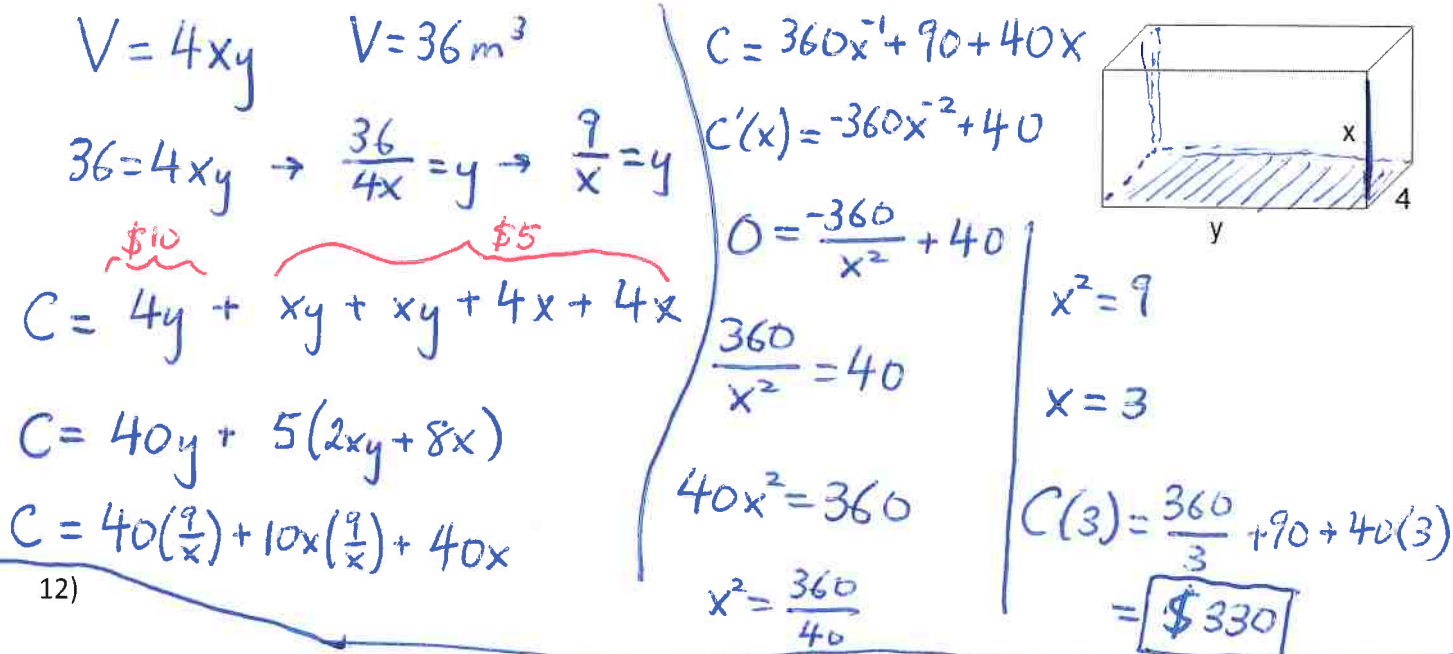 V = 4xy V = 36 m³
36 = 4xy → 36/4x = y → 9/x = y
$10 $5
C = 4y + xy + xy + 4x + 4x
C = 40y + 5(2xy + 8x)
C = 40(9/x) + 10x(9/x) + 40x
12)
C = 360x⁻¹ + 90 + 40x
C'(x) = -360x⁻² + 40
0 = -360/x² + 40
360/x² = 40
40x² = 360
x² = 360/40
x
4
y
x² = 9
x = 3
C(3) = 360/3 + 90 + 40(3)
= $330